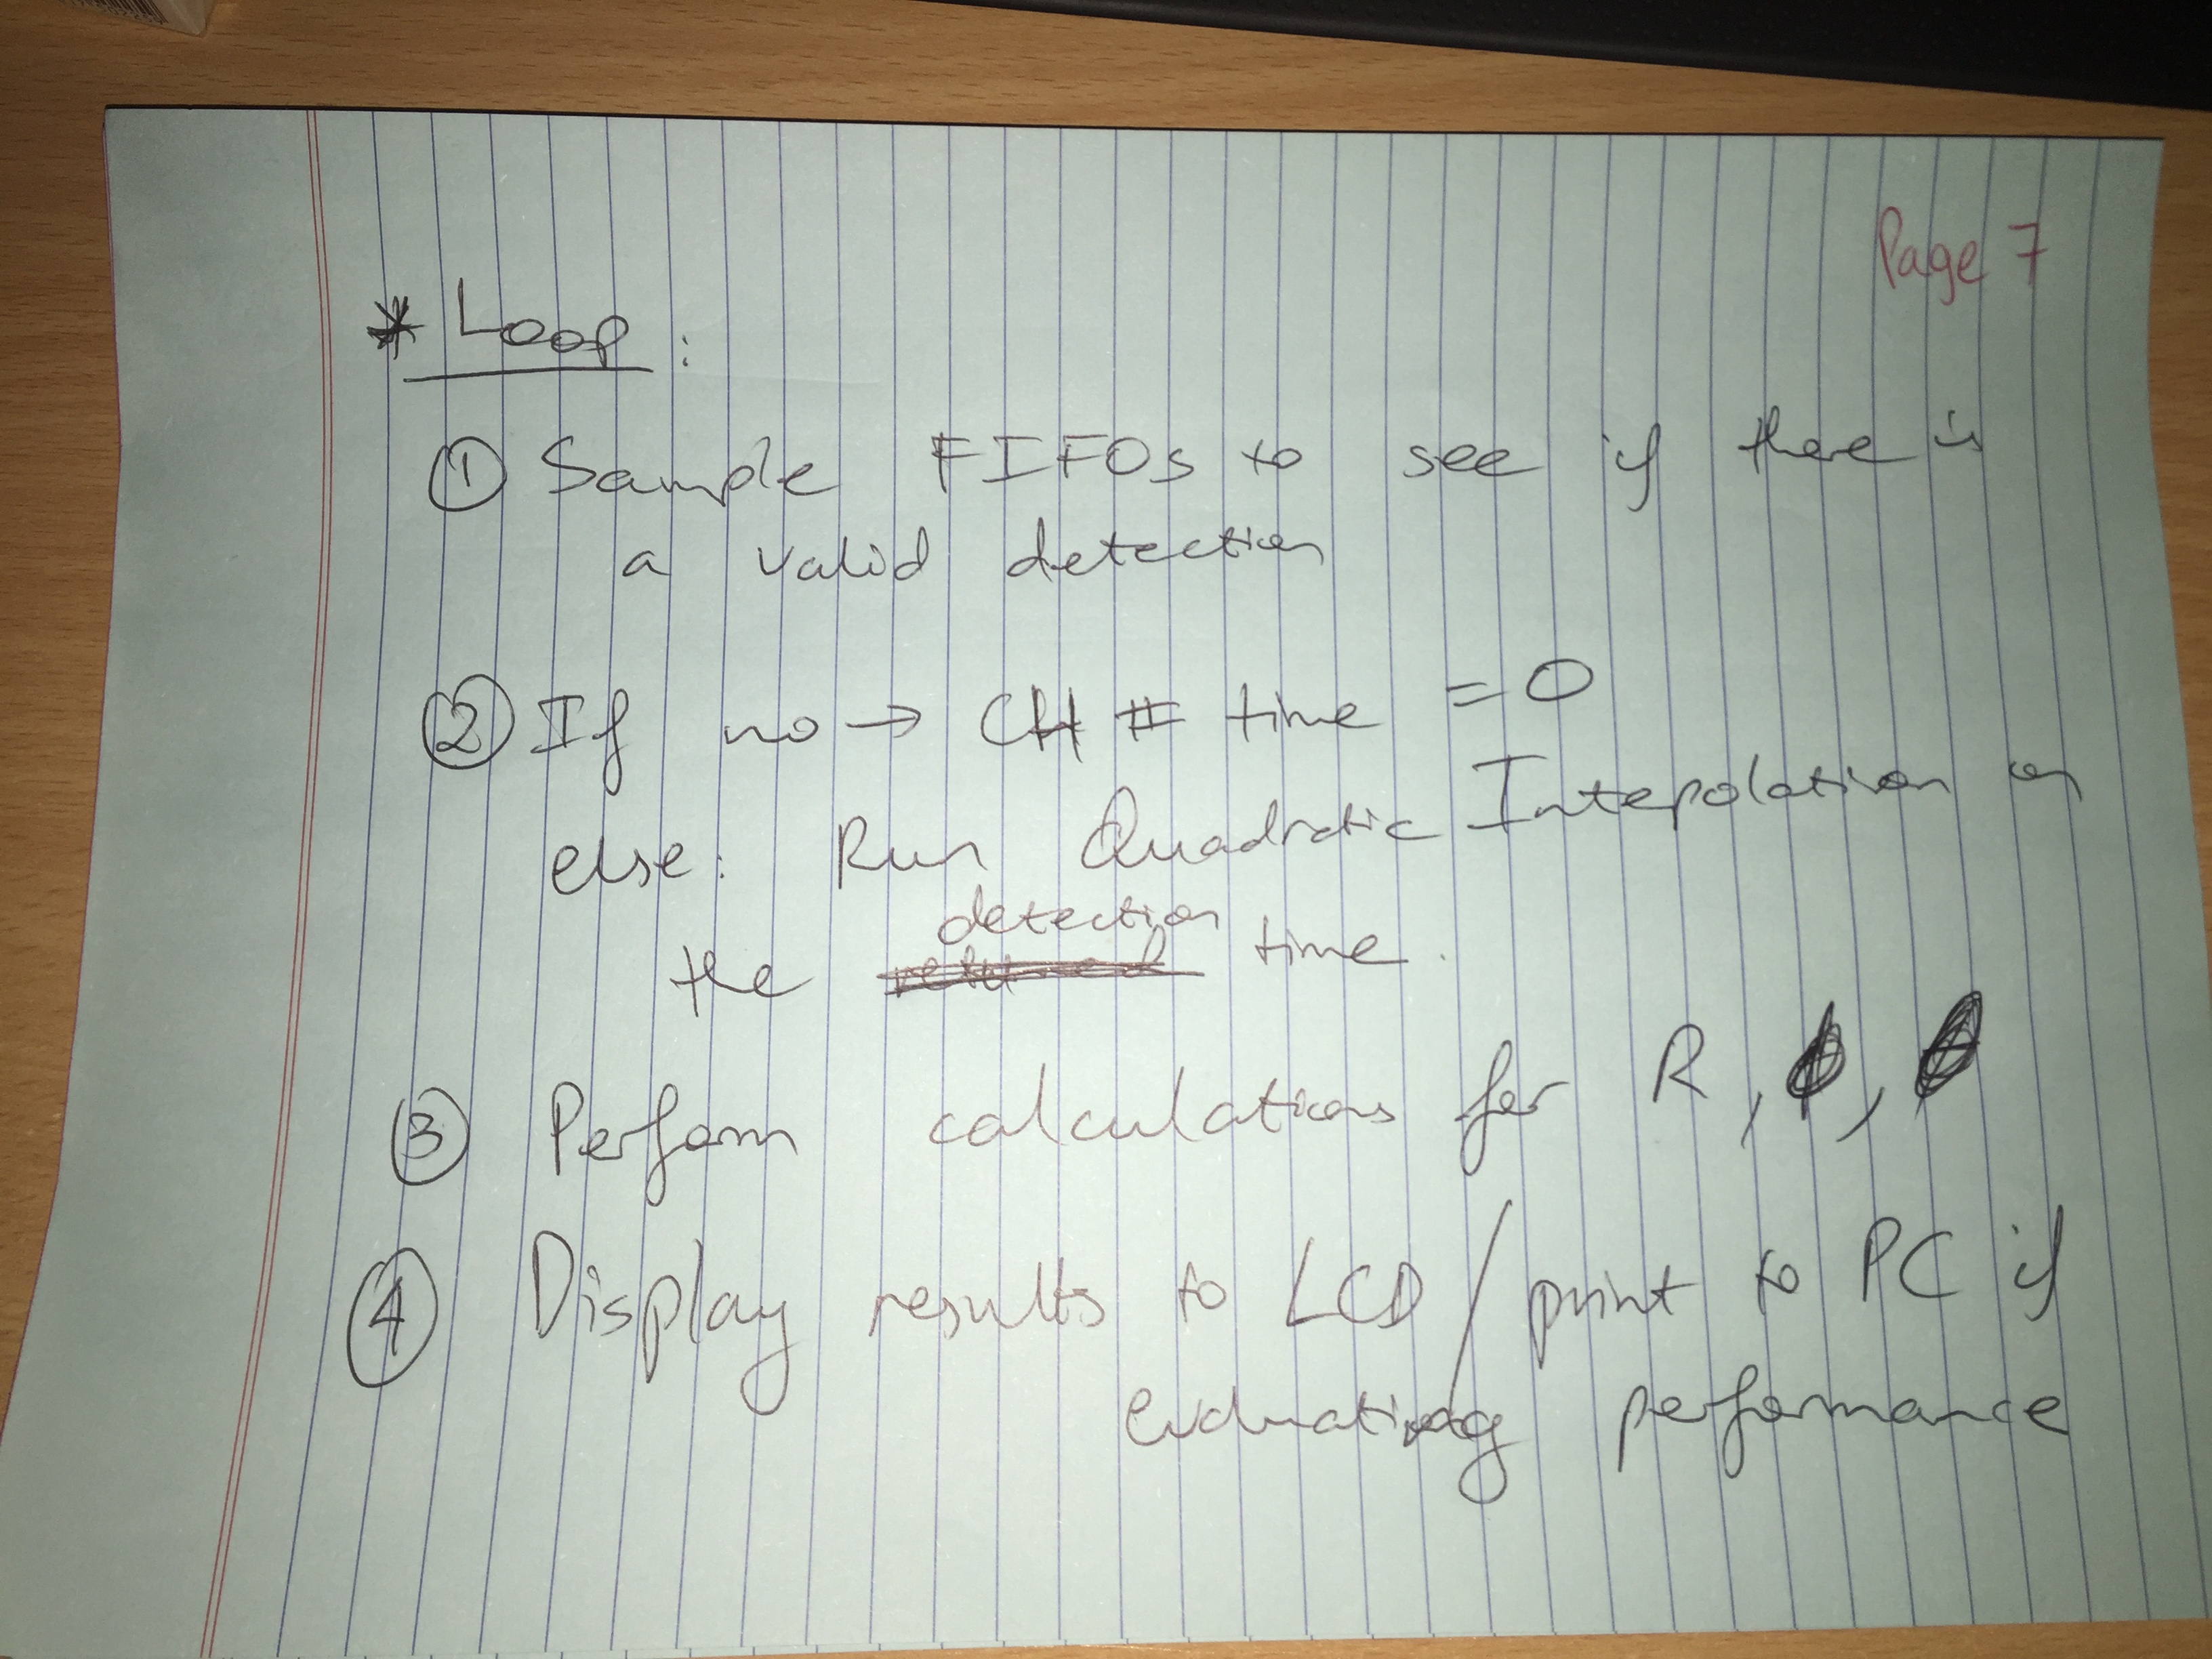 Page 7
* Loop :
① Sample FIFOs to see if there is
a valid detection
② If no → CH # time = 0
else: Run Quadratic Intepolation on
the detection time.
③ Perform calculations for R, ,
④ Display results to LCD / print to PC if
evaluating performance